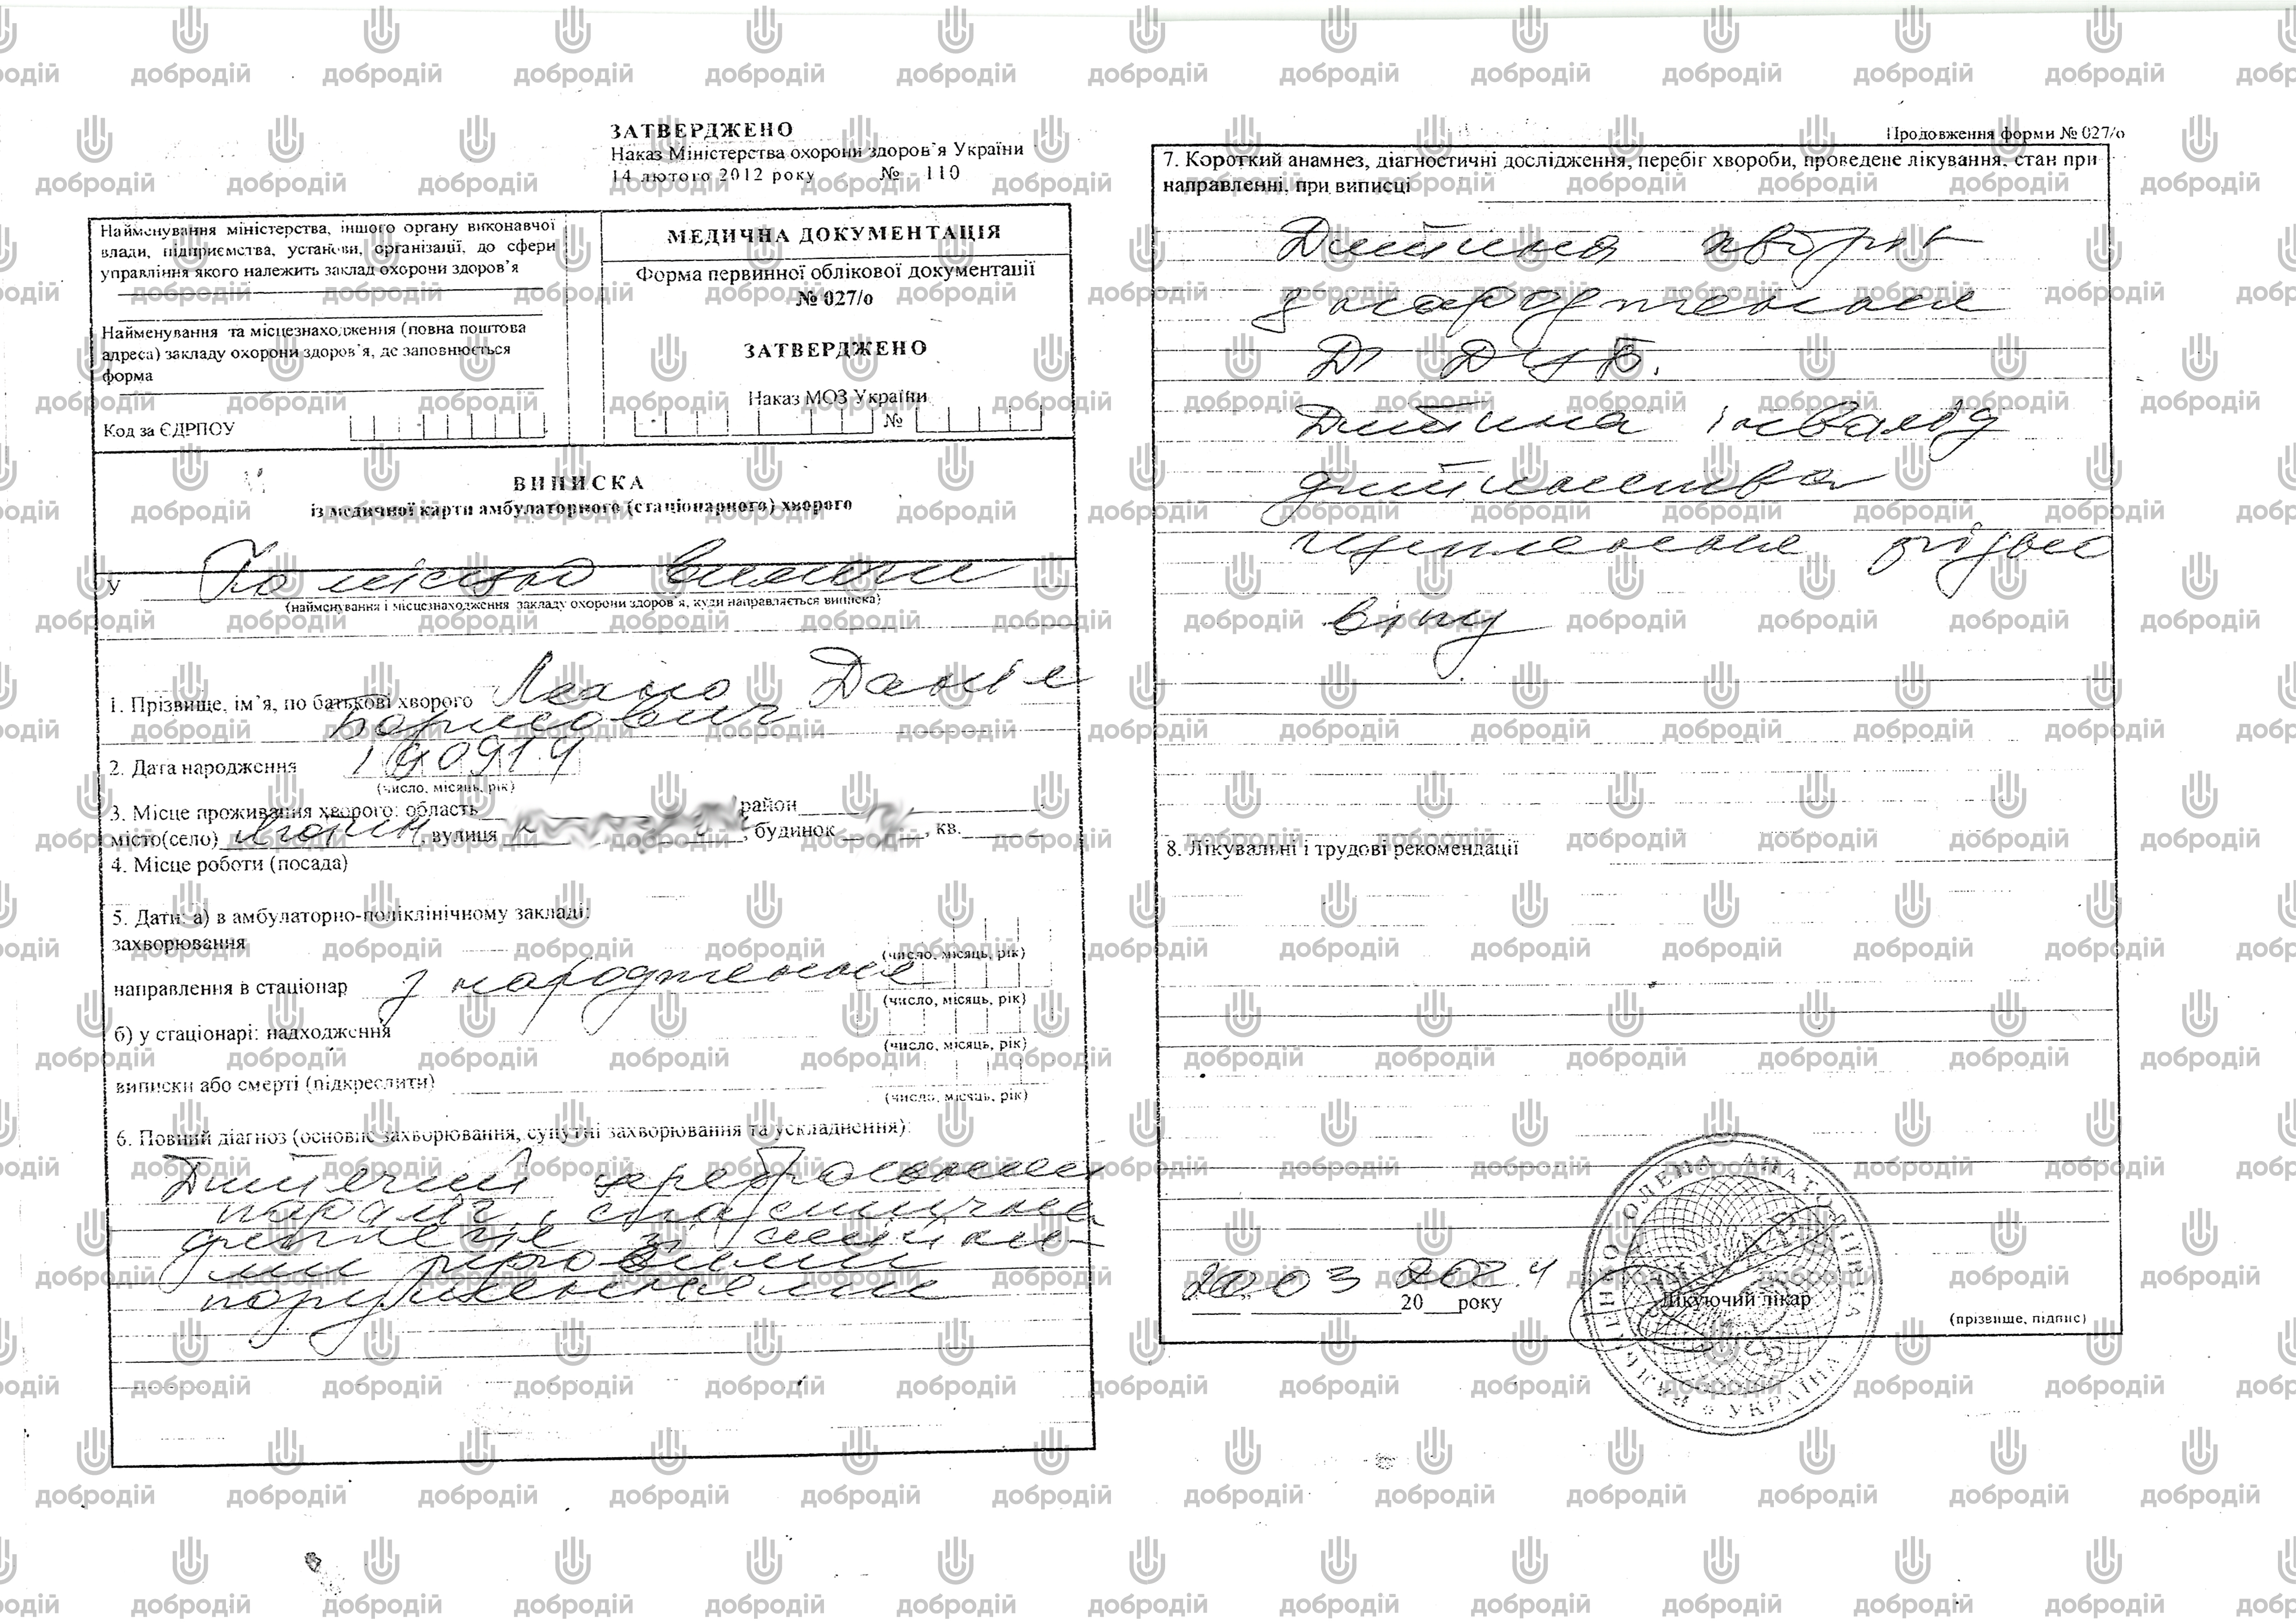 ЗАТВЕРДЖЕНО
Наказ Міністерства охорони здоров'я України
14 лютого 2012 року № 110
Найменування міністерства, іншого органу виконавчої
влади, підприємства, установи, організації, до сфери
управління якого належить заклад охорони здоров'я
Найменування та місцезнаходження (повна поштова
адреса) закладу охорони здоров'я, де заповнюється
форма
Код за ЄДРПОУ
МЕДИЧНА ДОКУМЕНТАЦІЯ
Форма первинної облікової документації
№ 027/о
ЗАТВЕРДЖЕНО
Наказ МОЗ України
№
ВИПИСКА
із медичної карти амбулаторного (стаціонарного) хворого
У По місцю вимоги
(найменування і місцезнаходження закладу охорони здоров'я, куди направляється виписка)
1. Прізвище, ім'я, по батькові хворого Даніїл
Борисович
2. Дата народження
(число, місяць, рік)
3. Місце проживання хворого: область район
місто(село) , вулиця , будинок , кв.
4. Місце роботи (посада)
5. Дати: а) в амбулаторно-поліклінічному закладі:
захворювання
(число, місяць, рік)
направлення в стаціонар з народження
(число, місяць, рік)
б) у стаціонарі: надходження
(число, місяць, рік)
виписки або смерті (підкреслити)
(число, місяць, рік)
6. Повний діагноз (основне захворювання, супутні захворювання та ускладнення):
Дитячий церебральний
параліч, спастична
диплегія зі стійки-
ми руховими
порушеннями
Продовження форми № 027/о
7. Короткий анамнез, діагностичні дослідження, перебіг хвороби, проведене лікування, стан при
направленні, при виписці
Дитина хворіє
з народження
Дитина інвалід
дитинства
щеплення згідно
віку
8. Лікувальні і трудові рекомендації
20.03 2024
20 року
Лікуючий лікар
(прізвище, підпис)
ОЛЕНА АНАТОЛІЇВНА
ЛІКАР
УКРАЇНА
добродій